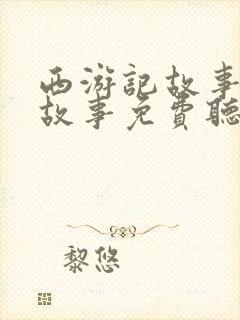 西游記故事
故事免費聽
黎悠